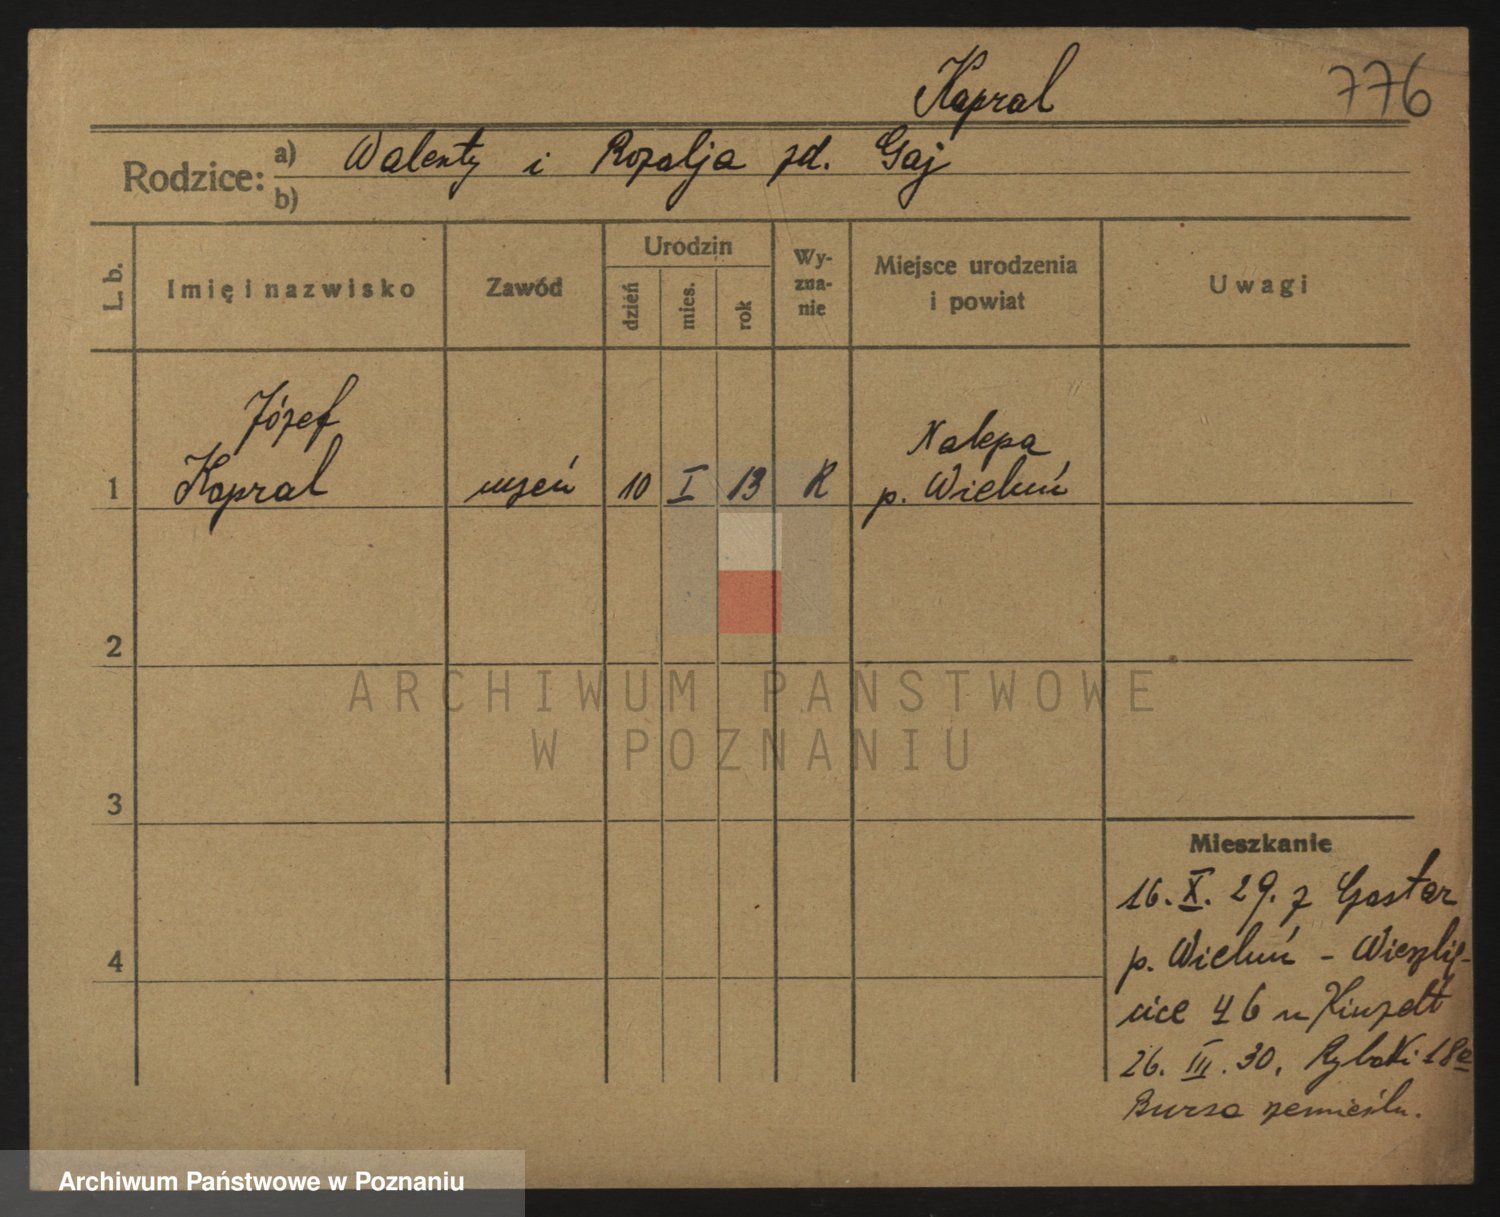 Kapral 776
Rodzice: a) Walenty i Rozalja zd. Gaj
b)
L. b. Imię i nazwisko Zawód Urodzin dzień mies. rok Wyznanie Miejsce urodzenia i powiat Uwagi
Józef
Kapral
Nalepa
1 uczeń 10 I 13 R p. Wieluń
2
3
4
Mieszkanie
16. X. 29. z
p. Wieluń -
46 u
26. III. 30. Rybaki 18a
Bursa rzemieśln.
ARCHIWUM PAŃSTWOWE
W POZNANIU
Archiwum Państwowe w Poznaniu